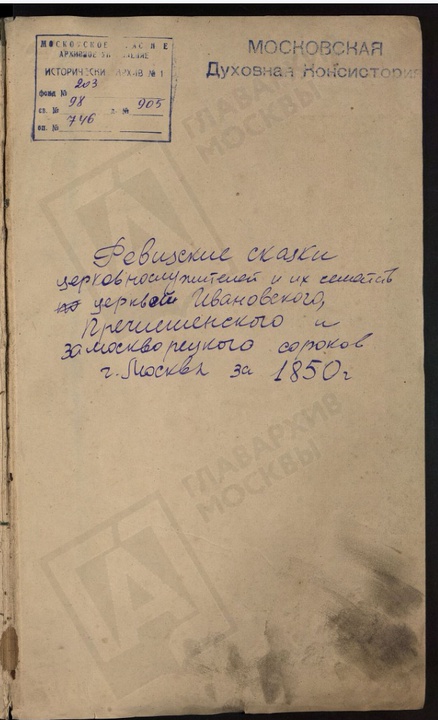 МОСКОВСКОЕ
АРХИВНОЕ УПРАВЛЕНИЕ
ИСТОРИЧЕСКИЙ АРХИВ № 1
фонд № 203
св. № 98 д. № 905
оп. № 746
МОСКОВСКАЯ
Духовная Консистория
Ревизские сказки
церковнослужителей и их семейств
церквей Ивановского,
Пречистенского и
замоскворецкого сороков
г. Москвы за 1850 г
ГЛАВАРХИВ
МОСКВЫ
ГЛАВАРХИВ
МОСКВЫ